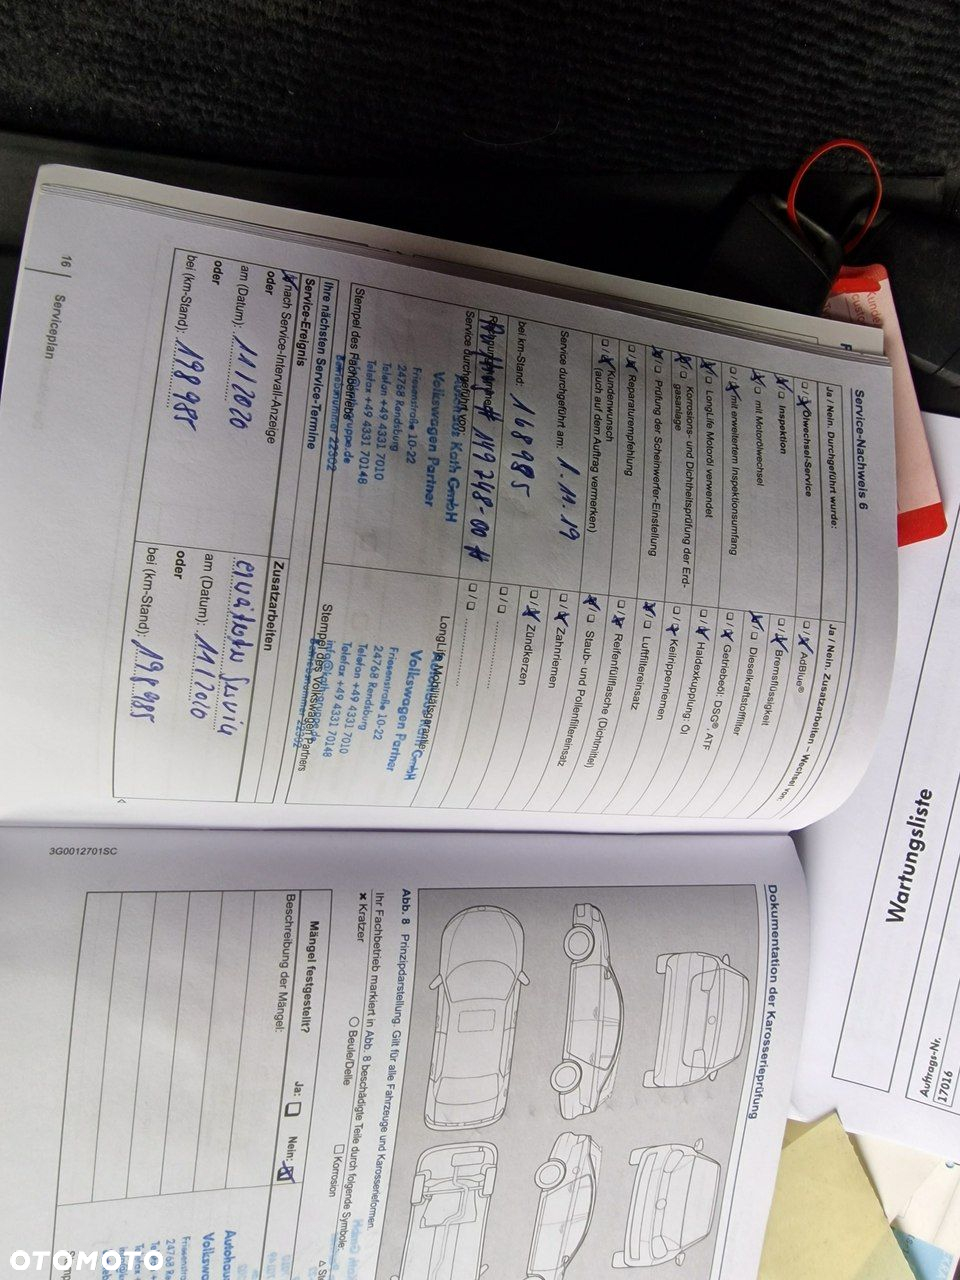 Service-Nachweis 6
Ja / Nein. Durchgeführt wurde:
☐ / ☒ Ölwechsel-Service
☒ / ☐ Inspektion
☒ / ☐ mit Motorölwechsel
☐ / ☒ mit erweitertem Inspektionsumfang
☒ / ☐ LongLife Motoröl verwendet
☒ / ☐ Korrosions- und Dichtheitsprüfung der Erd-
gasanlage
☒ / ☐ Prüfung der Scheinwerfer-Einstellung
☐ / ☒ Reparaturempfehlung
☐ / ☒ Kundenwunsch
(auch auf dem Auftrag vermerken)
Service durchgeführt am: 1.11.19
bei km-Stand: 168985
# 149248-00 #
Service durchgeführt von:
Autohaus Kath GmbH
Volkswagen Partner
Friesenstraße 10-22
24768 Rendsburg
Telefon +49 4331 7010
Telefax +49 4331 70148
Betriebsnummer 22302
Stempel des Fachbetriebs
Ja / Nein. Zusatzarbeiten – Wechsel von:
☐ / ☒ AdBlue®
☐ / ☒ Bremsflüssigkeit
☒ / ☐ Dieselkraftstofffilter
☐ / ☒ Getriebeöl: DSG®, ATF
☐ / ☒ Haldexkupplung: Öl
☐ / ☒ Keilrippenriemen
☒ / ☐ Luftfiltereinsatz
☐ / ☒ Reifenfüllflasche (Dichtmittel)
☒ / ☐ Staub- und Pollenfiltereinsatz
☐ / ☒ Zahnriemen
☐ / ☒ Zündkerzen
☐ / ☐
☐ / ☐
LongLife Mobilitätsgarantie
Autohaus Kath GmbH
Volkswagen Partner
Friesenstraße 10-22
24768 Rendsburg
Telefon +49 4331 7010
Telefax +49 4331 70148
info@kath-gruppe.de
Betriebsnummer 22302
Stempel des Volkswagen Partners
Ihre nächsten Service-Termine
Service-Ereignis
☒ nach Service-Intervall-Anzeige
oder
am (Datum): 11/2020
oder
bei (km-Stand): 198985
Zusatzarbeiten
am (Datum): 11/2020
oder
bei (km-Stand): 198985
16 Serviceplan
3G0012701SC
Dokumentation der Karosserieprüfung
Abb. 8 Prinzipdarstellung. Gilt für alle Fahrzeuge und Karosserieformen.
Ihr Fachbetrieb markiert in Abb. 8 beschädigte Teile durch folgende Symbole:
✖ Kratzer
○ Beule/Delle
☐ Korrosion
Mängel festgestellt? Ja: ☐ Nein: ☒
Beschreibung der Mängel:
Wartungsliste
Auftrags-Nr.
17016
OTOMOTO